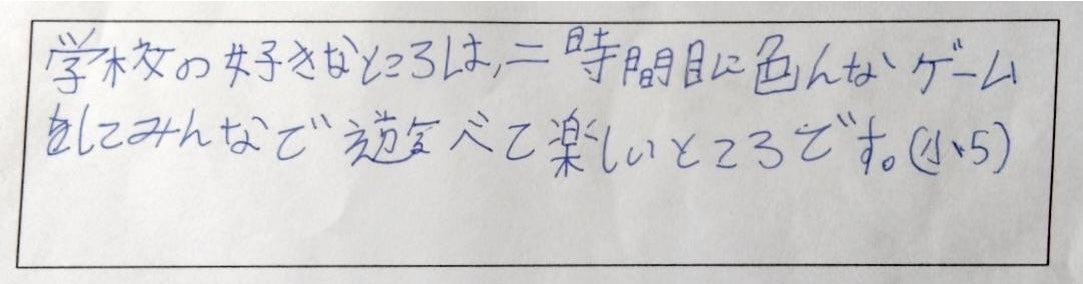 学校の好きなところは、二時間目に色んなゲーム
をしてみんなで遊べて楽しいところです。(小5)